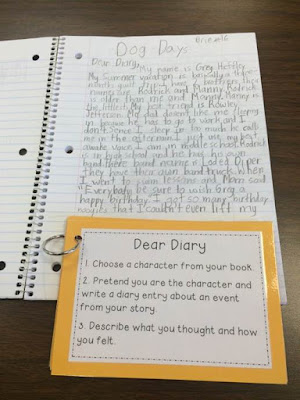 Dog Days
Dear Dairy, My name is Greg Heffley
My Summer vacation is basically a three
months guilt trip I have 2 brothers, their
names are Rodrick and Manny Rodrick
is older than me and Manny Manny is
the littlest. My best friend is Rowley
Jefferson. My dad doesnt like me sleeping
in because he has to go to work and I
don't since I sleep in too much he calls
me in the afternoon. I put on my best
awake voice. I am in middle school Rodrick
is in high school and he has his own
band there band name is Loded Diper
they have their own band truck. When
I went to swim lessons and Mom said
"Everybody be sure to wish Greg a
happy birthday I got so many birthday
that I couldn't even lift my
Dear Diary
1. Choose a character from your book.
2. Pretend you are the character and
write a diary entry about an event
from your story.
3. Describe what you thought and how
you felt.